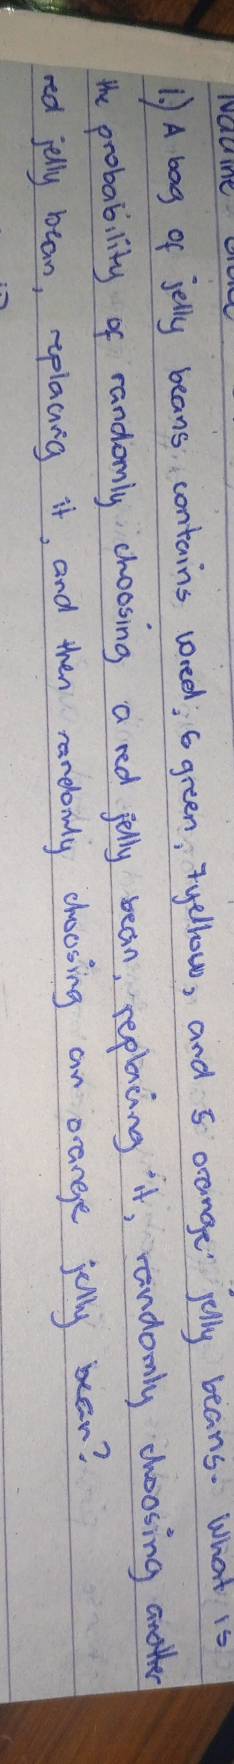 1.) A bag of jelly beans contains 10 red, 6 green, 7 yellow, and 5 orange jelly beans. What is
the probability of randomly choosing a red jelly bean, replacing it, randomly choosing another
red jelly bean, replacing it, and then randomly choosing an orange jelly bean?